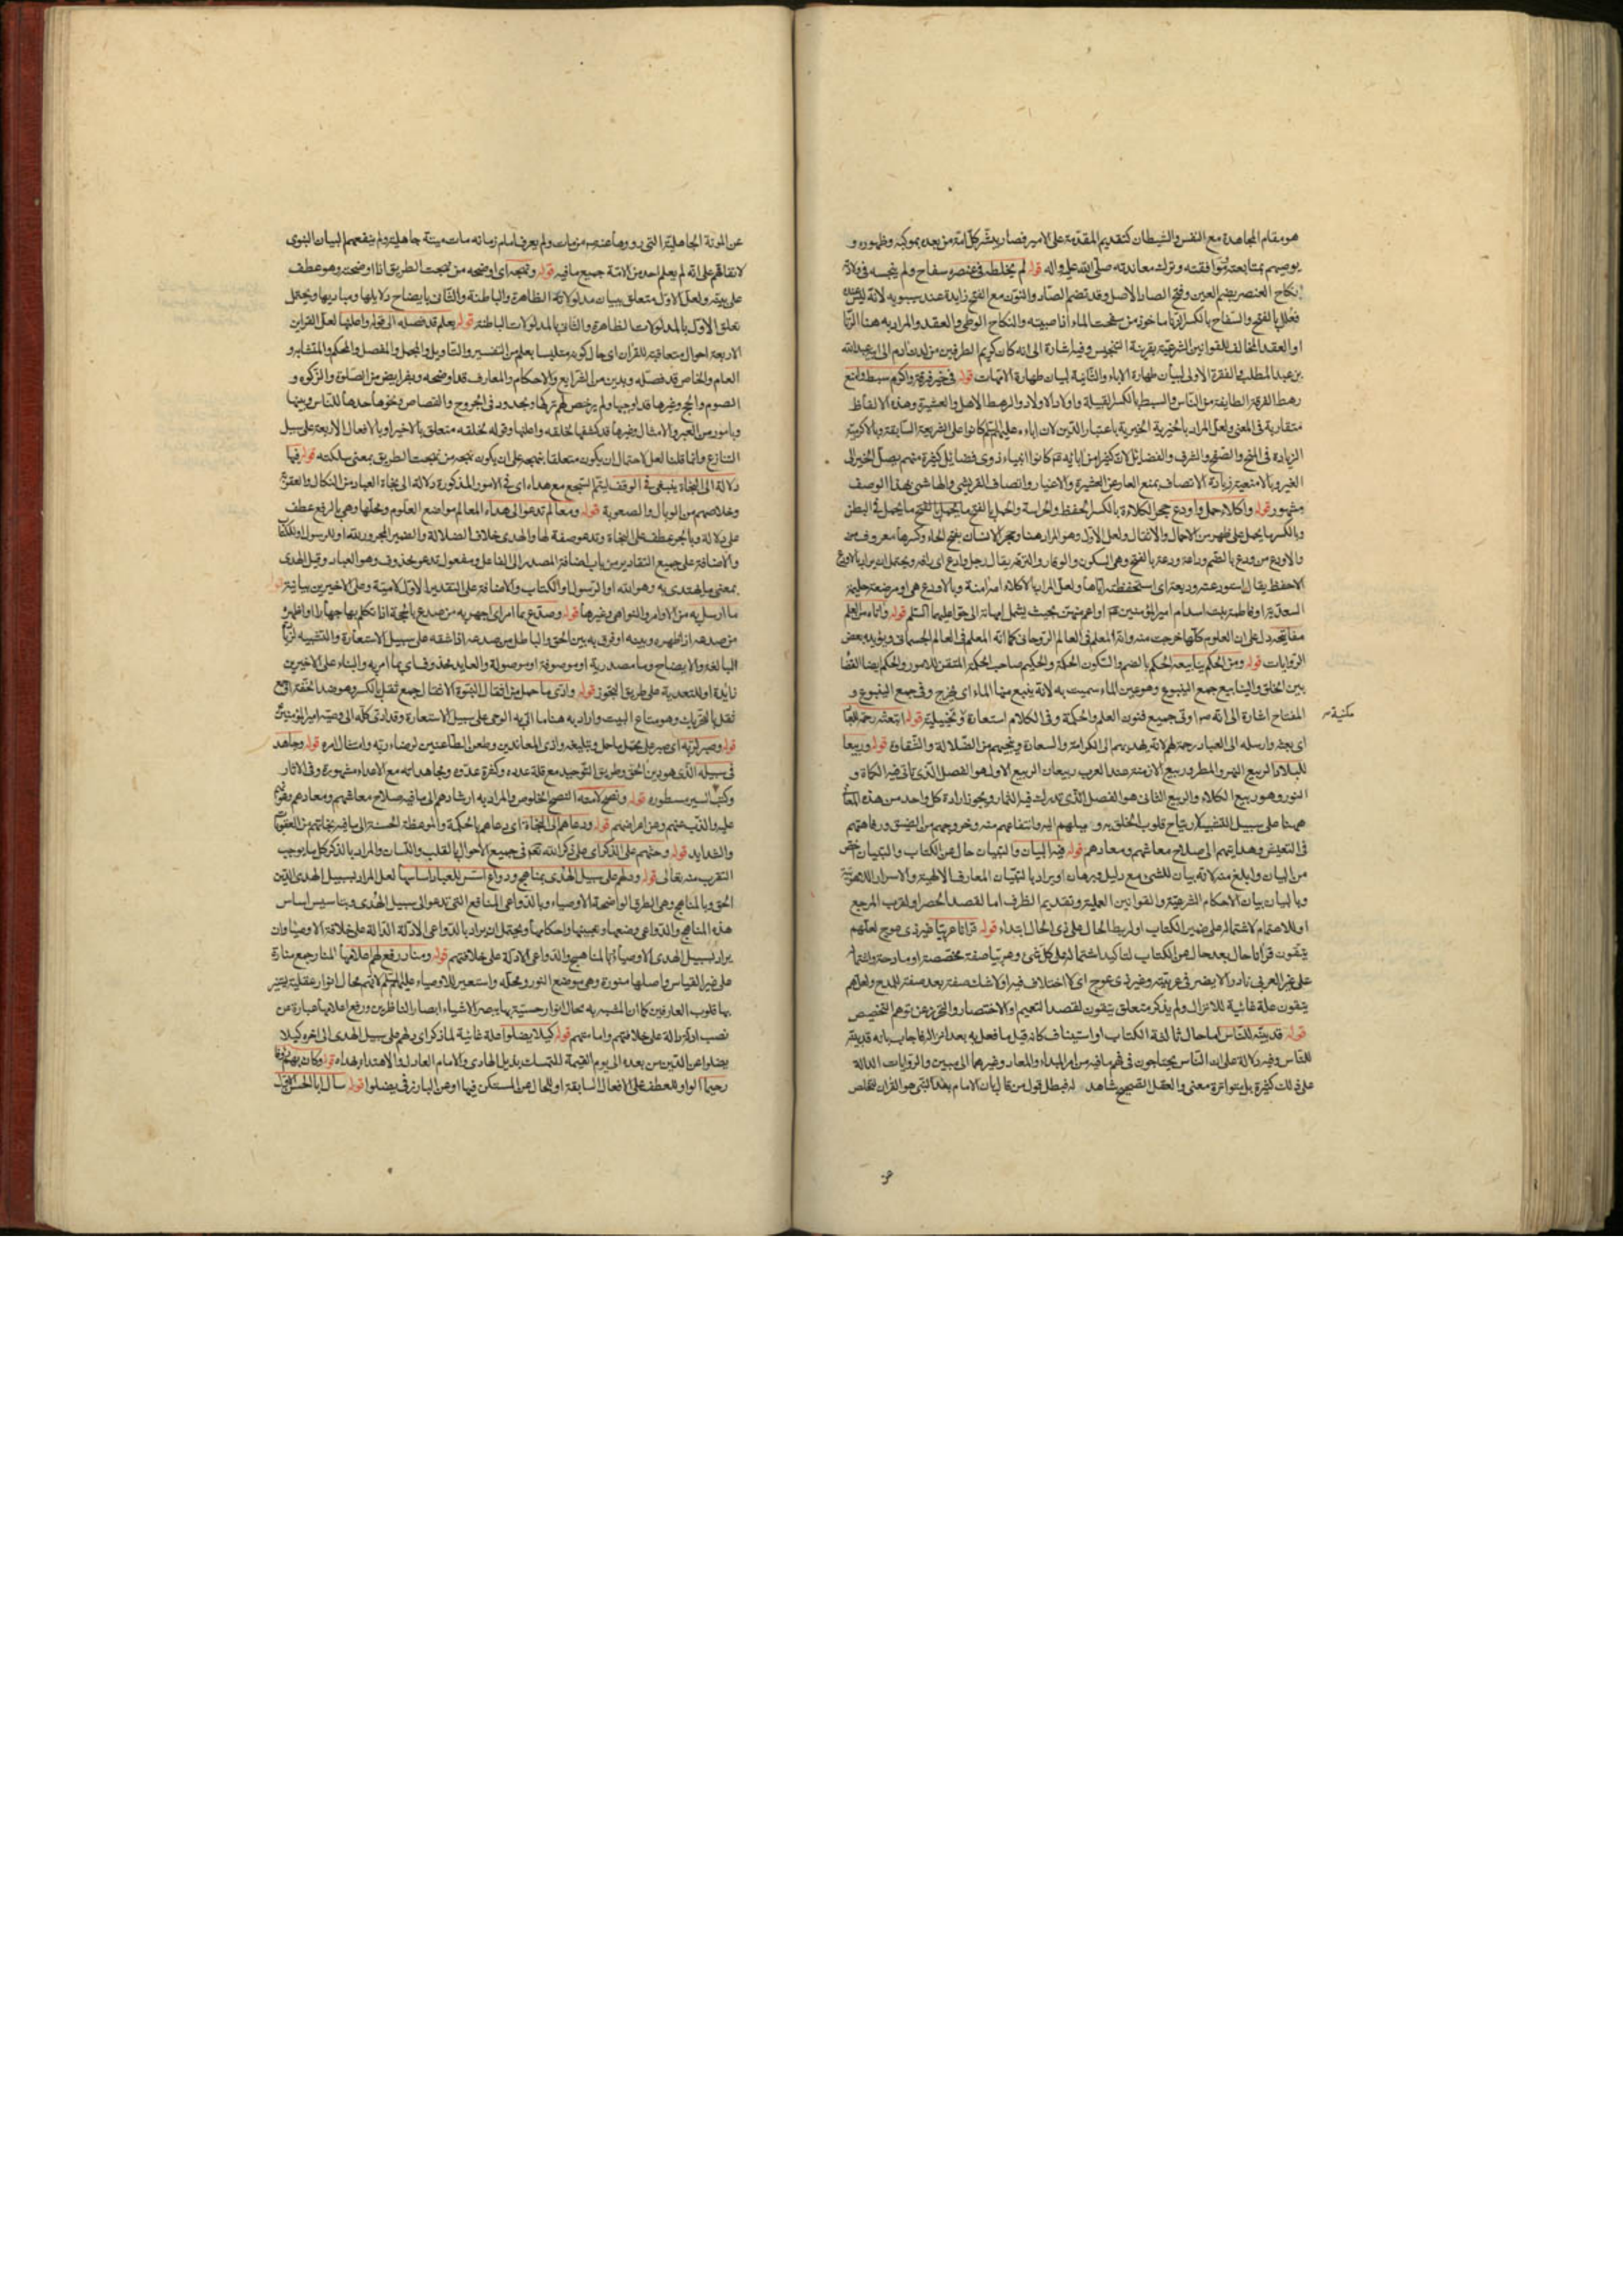 هو مقام المجاهدة مع النفس والشيطان كتقديم المقدمة على الامير فصار يبشر كل امة من بعده بموكبه وظهوره و
يوصيهم بمتابعته وموافقته وترك معاندته صلى الله عليه واله قوله لم يخلطه في عنصره سفاح ولم ينجسه في ولادته
نكاح العنصر بضم العين وفتح الصاد الاصل وقد تضم الصاد والنون مع الفتح زايدة عند سيبويه لانه ليس عنده
فعلل بالفتح والسفاح بالكسر الزنا ماخوذ من سفحت الماء اذا صببته والنكاح الوطي والعقد والمراد به هنا الزنا
او العقد المخالف للقوانين الشرعية بقرينة التنجيس وفيه اشارة الى انه كان كريم الطرفين من لدن ادم الى ابيه عبدالله
بن عبد المطلب في الفقرة الاولى لبيان طهارة الاباء والثانية لبيان طهارة الامهات قوله في خير فرقة واكرم سبط وامنع
رهط الفرقة الطايفة من الناس والسبط بالكسر القبيلة واولاد الاولاد والرهط الاهل والعشيرة وهذه الالفاظ
متقاربة في المعنى ولعل المراد بالخيرية الخيرية باعتبار الدين لان اباءه عليهم السلم كانوا على الشريعة السابقة وبالاكرمية
الزيادة في المنح والصفح والشرف والفضائل لان كثيرا من ابايه كانوا انبياء ذوي فضائل كثيرة منهم يصل الخير الى
الغير وبالامنعية زيادة الاتصاف بمنع العار عن العشيرة والاغيار واتصاف القريشي والهاشمي بهذا الوصف
مشهور قوله واكلاء حمل واودع حجر الكلاءة بالكسر الحفظ والحراسة والحمل بالفتح ما يحمل في البطن
وبالكسر ما يحمل على ظهر من الاحمال والاثقال ولعل الاول وهو المراد هنا وحجر الانسان بفتح الحاء وكسرها معروف
والاودع من ودع بالضم وداعة ودعة بالفتح وهي السكون والوقار والترفه يقال رجل وادع اي رافه ويحتمل ان يراد بالاودع
الاحفظ يقال استودعته وديعة اي استحفظته اياها ولعل المراد بالاكلاء امه امنة وبالاودع هي او مرضعته حليمة
السعدية او فاطمة بنت اسد ام امير المؤمنين او اعم منهن بحيث يشمل ايمانه الى حق اعليهما السلم قوله واتاه من العلم
مفاتيحه دل على ان العلوم كلها خرجت منه وانه المعلم في العالم الروحاني كما انه المعلم في العالم الجسماني ويؤيده بعض
الروايات قوله ومن الحكم ينابيعه الحكم بالضم والسكون الحكمة والحكيم صاحب الحكمة المتقن للامور والحكم ايضا القضا
بين الخلق والينابيع جمع الينبوع وهو عين الماء سميت به لانه ينبع منها الماء اي يخرج وفي جمع الينبوع و
مكنية
المفتاح اشارة الى انه اوتي جميع فنون العلم والحكمة وفي الكلام استعارة وتخييلية قوله ابتعثه رحمة للعباد
اي بعثه وارسله الى العباد رحمة لهم لانه يهديهم الى الكرامة والسعادة وينجيهم من الضلالة والشقاوة قوله وربيعا
للبلاد الربيع النهر والمطر وربيع الازمنة عند العرب ربيعان الربيع الاول هو الفصل الذي تاتي فيه الكماة و
النور وهو ربيع الكلاء والربيع الثاني هو الفصل الذي تدرك فيه الثمار ويجوز ارادة كل واحد من هذه المعاني
ههنا على سبيل التشبيه لارتياح قلوب الخلق به وميلهم اليه وانتفاعهم منه وخروجهم من الضيق ورفاهتهم
في التعيش وهدايتهم الى صلاح معاشهم ومعادهم قوله فيه البيان والتبيان حال عن الكتاب والتبيان اخص
من البيان وابلغ منه لانه بيان للشيء مع دليل وبرهان او يراد بالتبيان المعارف الالهية والاسرار اللاهوتية
وبالبيان بيان الاحكام الشرعية والقوانين العملية وتقديم الظرف اما لقصد الحصر او لقرب المرجع
او للاهتمام لاشتماله على ضمير الكتاب او لربط الحال على ذي الحال ابتداء قوله قرانا عربيا غير ذي عوج لعلهم
يتقون قرانا حال بعد حال عن الكتاب لتاكيد اشتماله على كل شيء وعربيا صفة مخصصة او مادحة واشتماله
على غير العربي نادرا لا يضر في عربيته وغير ذي عوج اي لا اختلاف فيه او لا شك صفة بعد صفة للمدح ولعلهم
يتقون علة غائية للانزال ولم يذكر متعلق يتقون لقصد التعميم او الاختصار والتحرز عن توهم التخصيص
قوله قد بينه للناس اما حال ثالثة الكتاب او استيناف كانه قيل ما فعل به بعد انزاله فاجاب بانه قد بينه
للناس وفيه دلالة على ان الناس يحتاجون في فهم ما فيه من امر المبداء والمعاد وغيرهما الى مبين والروايات الدالة
على ذلك كثيرة بل متواترة معنى والعقل الصحيح شاهد له فبطل قول من قال بان الامام بعد النبي هو القران فتخلص
عن
عن الموتة الجاهلية التي رووها عنه من مات ولم يعرف امام زمانه مات ميتة جاهلية ولم ينفعهم البيان النبوي
لاتفاقهم على انه لم يعلم احد من الامة جميع ما فيه قوله ونهجه اي اوضحه من نهجت الطريق اذا اوضحته وهو عطف
على بينه ولعل الاول متعلق ببيان مدلولاته الظاهرة والباطنة والثاني بايضاح دلايلها ومباديها ويحتمل
تعلق الاول بالمدلولات الظاهرة والثاني بالمدلولات الباطنة قوله بعلم قد فصله الى قوله واعلنها لعل القراين
الاربعة احوال متعاقبة للقران اي حال كونه متلبسا بعلم من التفسير والتاويل والمجمل والمفصل والمحكم والمتشابه و
العام والخاص قد فصله وبدين من الشرايع والاحكام والمعارف قد اوضحه وبفرايض من الصلوة والزكوة و
الصوم والحج وغيرها قد اوجبها ولم يرخص لهم تركها وبحدود في الجروح والقصاص ونحوها حدها للناس وبينها
وبامور من العبر والامثال وغيرها قد كشفها لخلقه واعلنها وقوله لخلقه متعلق بالاخير او بالافعال الاربعة على سبيل
التنازع وانما قلنا لعل لاحتمال ان يكون متعلقا بنهجه على ان يكون نهجه من نهجت الطريق بمعنى سلكته قوله فيها
دلالة الى النجاة ينبغي في الوقف ليتم السجع مع هداه اي في الامور المذكورة دلالة الى نجاة العباد من النكال والعقوبة
وخلاصهم من الوبال والصعوبة قوله ومعالم تدعو الى هداه المعالم مواضع العلوم ومحلها وهي بالرفع عطف
على دلالة وبالجر عطف على النجاة وتدعو صفة لها والهدى خلاف الضلالة والضمير المجرور لله او للرسول او للكتاب
والاضافة على جميع التقادير من باب اضافة المصدر الى الفاعل ومفعول تدعو محذوف وهو العباد وقيل الهدى
بمعنى ما يهتدى به وهو الله او الرسول او الكتاب والاضافة على التقدير الاول لامية وعلى الاخيرين بيانية قوله
ما ارسل به من الاوامر والنواهي وغيرها قوله وصدع بما امر اي اجهر به من صدع بالحجة اذا تكلم بها جهارا او اظهره
من صدعه اذا ظهره وبينه او فرق به بين الحق والباطل من صدعه اذا شقه على سبيل الاستعارة والتشبيه لزيادة
المبالغة والايضاح وما مصدرية او موصوفة او موصولة والعايد محذوف اي بما امر به والباء على الاخيرين
زايدة او للتعدية على طريق التجوز قوله وادى ما حمل من اثقال النبوة الاثقال جمع ثقل بالكسر وهو ضد الخفة او جمع
ثقل بالتحريك وهو متاع البيت واراد به هنا ما اتى به الوحي على سبيل الاستعارة وقد ادى كله الى وصيه امير المؤمنين
قوله وصبر لربه اي صبر على تحمل ما حمل وتبليغه واذى المعاندين وطعن الطاعنين لرضاء ربه وامتثال امره قوله وجاهد
في سبيله الذي هو دين الحق وطريق التوحيد مع قلة عدده وكثرة عدوه ومجاهداته مع الاعداء مشهورة وفي الاثار
وكتب السير مسطورة قوله ونصح لامته النصح الخلوص والمراد به ارشادهم الى ما فيه صلاح معاشهم ومعادهم
عليه والذب عنهم وعن اعراضهم قوله ودعاهم الى النجاة اي دعاهم بالحكمة والموعظة الحسنة الى ما فيه نجاتهم من العقوبات
والشدايد قوله وحثهم على الذكر اي على ذكر الله تعالى في جميع الاحوال بالقلب واللسان والمراد بالذكر كل ما يوجب
التقرب منه تعالى قوله ودلهم على سبيل الهدى بمناهج ودواع اسس للعباد اساسها لعل المراد بسبيل الهدى الدين
الحق وبالمناهج وهي الطرق الواضحة الاوصياء وبالدواعي المنافع التي تدعو الى سبيل الهدى وبتاسيس اساس
هذه المناهج والدواعي وضعها وتعيينها واحكامها ويحتمل ان يراد بالدواعي الادلة الدالة على خلافة الاوصيا وان
يراد بسبيل الهدى الاوصياء وبالمناهج والدواعي الادلة على خلافتهم قوله ومنار رفع لهم اعلامها المنار جمع منارة
على غير القياس واصلها منورة وهي موضع النور ومحله واستعير للاوصياء عليهم السلم لانهم محال انوار عقلية
بها قلوب العارفين كما ان المشبه به محال انوار حسية بها يبصر الاشياء ابصار الناظرين ورفع اعلامها عبارة عن
نصب ادلة دالة على خلافتهم وامامتهم قوله كيلا يضلوا علة غائية لما ذكر اي دلهم على سبيل الهدى الى اخره كيلا
يضلوا عن الدين من بعده الى يوم القيمة للتمسك بذيل الهادي والامام العادل والاهتداء بهداه قوله وكان بهم رؤفا
رحيما الواو للعطف على الافعال السابقة او للحال عن المستكن فيها او عن البارز في يضلوا قوله سال ابا الحسن الاول